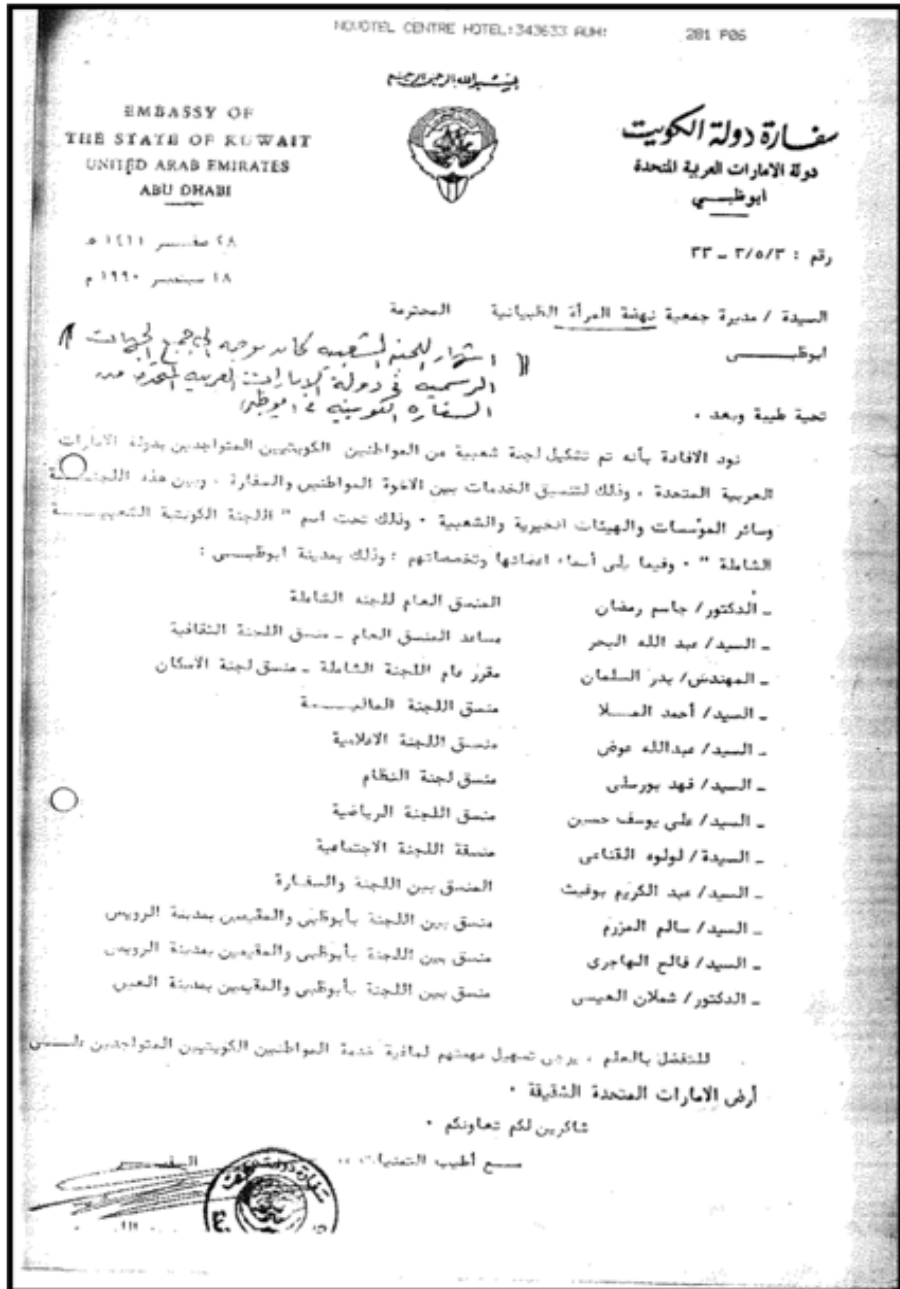 NOVOTEL CENTRE HOTEL:343633 AUH: 281 P06
بسم الله الرحمن الرحيم
EMBASSY OF
THE STATE OF KUWAIT
UNITED ARAB EMIRATES
ABU DHABI
سفارة دولة الكويت
دولة الامارات العربية المتحدة
ابوظبــي
٢٨ صفــر ١٤١١ هـ
١٨ سبتمبر ١٩٩٠ م
رقم : ٣/٥/٣ ــ ٣٣
السيدة / مديرة جمعية نهضة المرأة الظبيانية المحترمة
ابوظبـــــى
(( اشهار اللجنه الشعبيه كانه موجه الى جميع الجهات
الرسميه في دولة الإمارات العربيه المتحده من
السفاره الكويتيه في ابوظبى
تحية طيبة وبعد ،
نود الافادة بأنه تم تشكيل لجنة شعبية من المواطنين الكويتيين المتواجدين بدولة الامارات
العربية المتحدة ، وذلك لتنسيق الخدمات بين الاخوة المواطنين والسفارة ، وبين هذه اللجنـــة
وسائر المؤسسات والهيئات الخيرية والشعبية ٠ وذلك تحت اسم " اللجنة الكويتية الشعبيـــة
الشاملة " ٠ وفيما يلى أسماء اعضائها وتخصصاتهم ؛ وذلك بمدينة ابوظبــى :
ــ الدكتور/ جاسم رمضان المنسق العام للجنه الشاملة
ــ السيد/ عبد الله البحر مساعد المنسق العام ــ منسق اللجنة الثقافية
ــ المهندس/ بدر السلمان مقرر عام اللجنة الشاملة ــ منسق لجنة الاسكان
ــ السيد/ أحمد المــلا منسق اللجنة الماليـــة
ــ السيد/ عبدالله عوض منسق اللجنة الاعلامية
ــ السيد/ فهد بورسلى منسق لجنة النظام
ــ السيد/ على يوسف حسين منسق اللجنة الرياضية
ــ السيدة/ لولوه القناعى منسقة اللجنة الاجتماعية
ــ السيد/ عبد الكريم بوغيث المنسق بين اللجنة والسفـارة
ــ السيد/ سالم المزرم منسق بين اللجنة بأبوظبى والمقيمين بمدينة الرويس
ــ السيد/ فالح الهاجرى منسق بين اللجنة بأبوظبى والمقيمين بمدينة الرويس
ــ الدكتور/ شملان العيسى منسق بين اللجنة بأبوظبى والمقيمين بمدينة العين
للتفضل بالعلم ، يرجى تسهيل مهمتهم لماقية خدمة المواطنين الكويتيين المتواجدين علـــى
أرض الامارات المتحدة الشقيقة ٠
شاكرين لكم تعاونكم ٠
مـــع أطيب التمنيات ،،